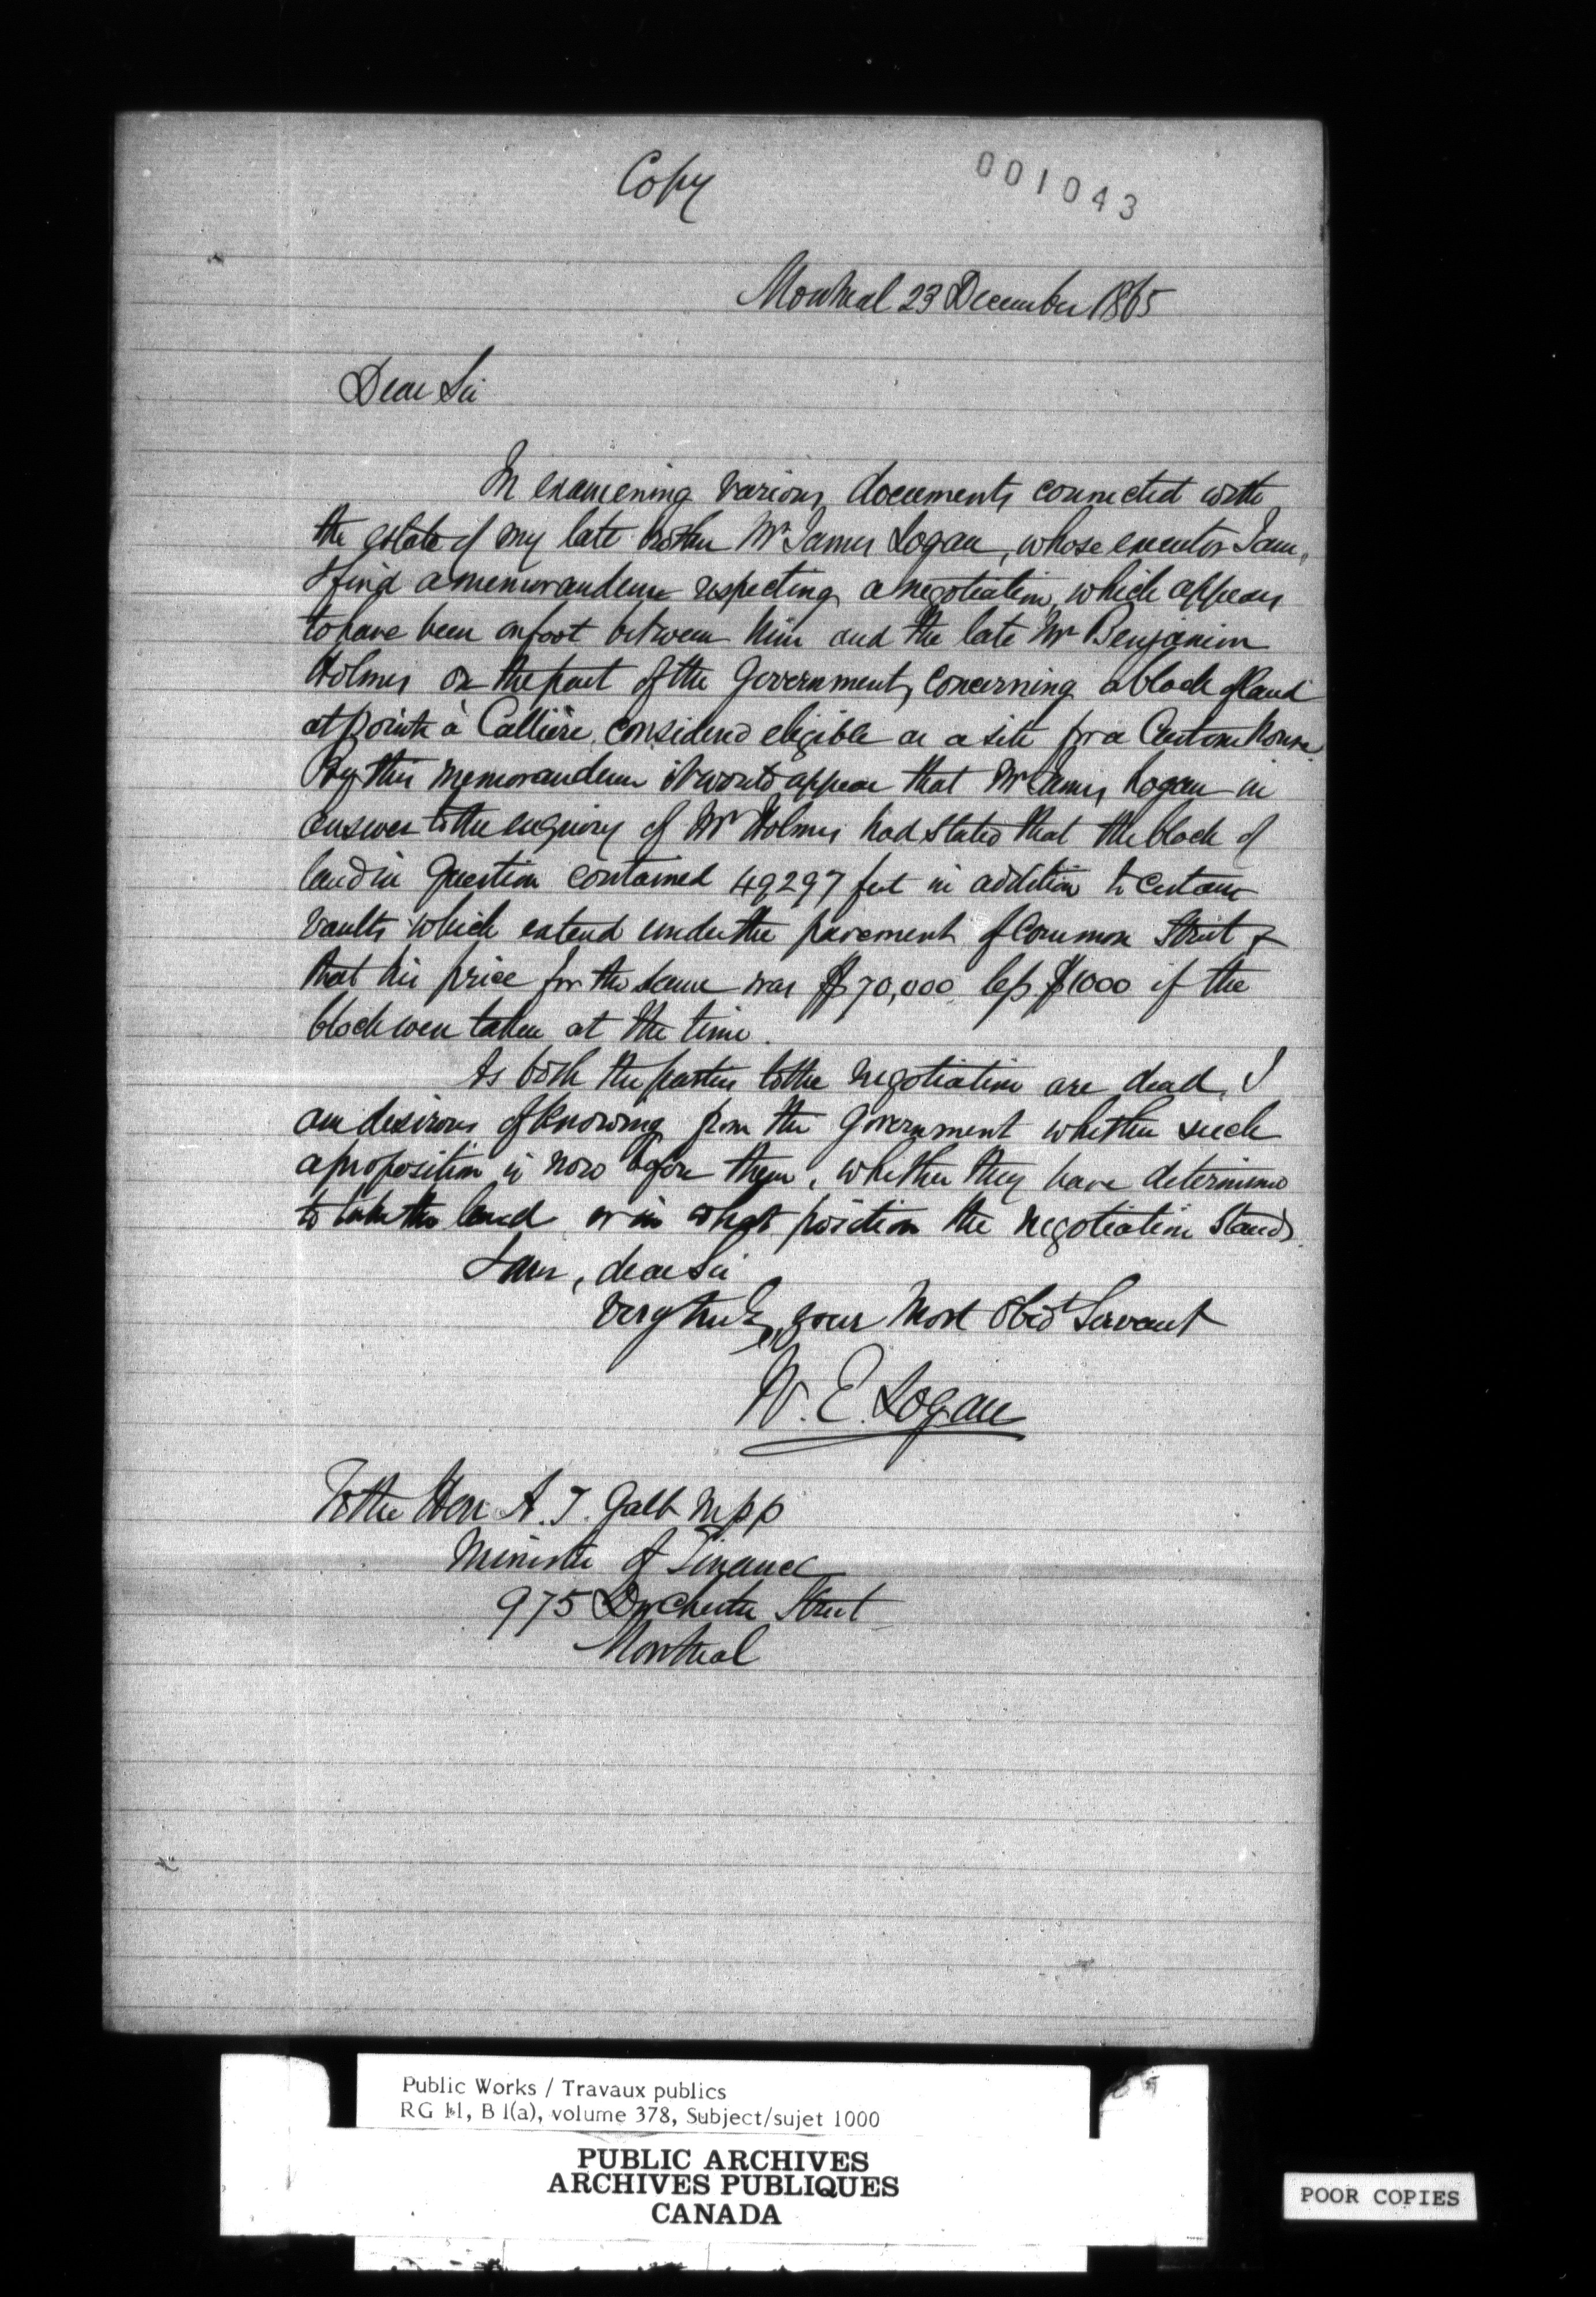 Copy
001043
Montreal 23 December 1865
Dear Sir
In examining various documents connected with
the estate of my late brother Mr James Logan, whose executor I am,
I find a memorandum respecting a negotiation which appears
to have been on foot between him and the late Mr Benjamin
Holmes on the part of the Government, concerning a block of land
at pointe à Callière, considered eligible as a site for a Custom house.
By this memorandum it would appear that Mr James Logan in
answer to the enquiry of Mr Holmes had stated that the block of
land in question contained 49297 feet in addition to certain
vaults which extend under the pavement of Common Street &
that his price for the same was $70,000 less $1000 if the
block were taken at the time.
As both the parties to the negotiation are dead, I
am desirous of knowing from the Government whether such
a proposition is now before them, whether they have determined
to take the land or in what position the negotiation stands.
I am, dear Sir
Very truly your Most Obedt Servant
W. E. Logan
To the Hon A. T. Galt MPP
Minister of Finance
975 Dorchester Street
Montreal
Public Works / Travaux publics
RG 11, B 1(a), volume 378, Subject/sujet 1000
PUBLIC ARCHIVES
ARCHIVES PUBLIQUES
CANADA
POOR COPIES